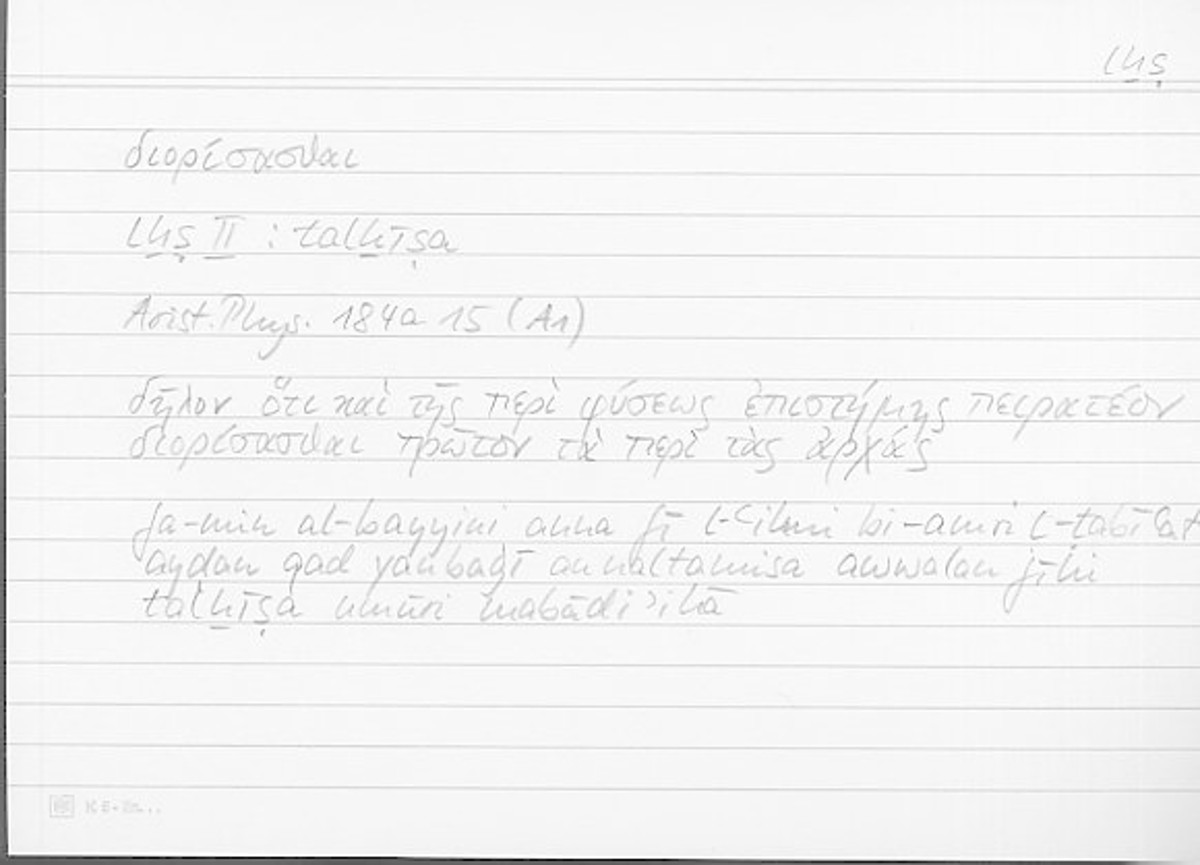 lḫṣ
διορίσασθαι
lḫṣ II : talḫīṣa
Arist. Phys. 184a 15 (A1)
δῆλον ὅτι καὶ τῆς περὶ φύσεως ἐπιστήμης πειρατέον
διορίσασθαι πρῶτον τὰ περὶ τὰς ἀρχάς
fa-min al-bayyini anna fī l-ʿilmi bi-amri l-tabīʿati
aydan qad yanbaġī an naltamisa awwalan fīhi
talḫīṣa umūri mabādiʾihā